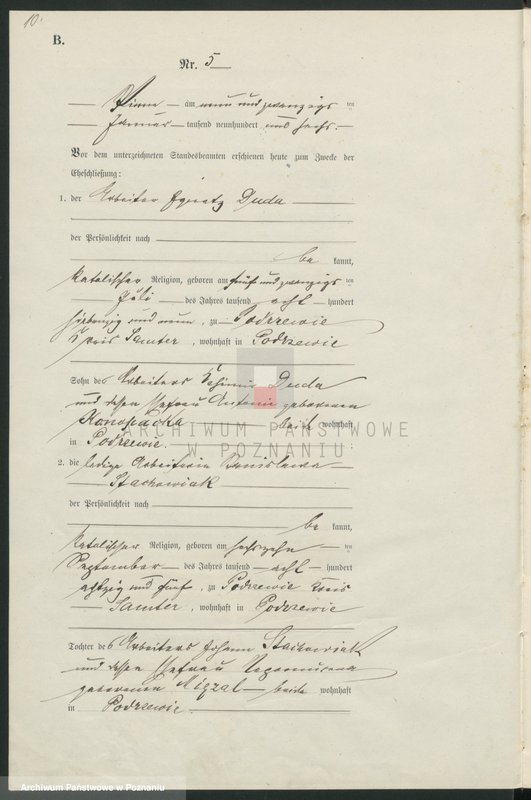 10.
B.
Nr. 5
Pinne am neun und zwanzigs ten
Januar tausend neunhundert und sechs.
Vor dem unterzeichneten Standesbeamten erschienen heute zum Zwecke der
Eheschließung:
1. der Arbeiter Ignatz Duda
der Persönlichkeit nach
be kannt,
katolischer Religion, geboren am fünf und zwanzigs ten
Juli des Jahres tausend acht hundert
siebenzig und neun, zu Podrzewie
Kreis Samter, wohnhaft in Podrzewie
Sohn des Arbeiters Duda
und dessen Ehefrau Antonie geborenen
Konopacka beide wohnhaft
in Podrzewie.
ARCHIWUM PAŃSTWOWE
W POZNANIU
2. die ledige Arbeiterin Bronislawa
Stachowiak
der Persönlichkeit nach
be kannt,
katolischer Religion, geboren am sechszehn ten
September des Jahres tausend acht hundert
achtzig und fünf, zu Podrzewie Kreis
Samter, wohnhaft in Podrzewie
Tochter des Arbeiters Johann Stachowiak
und dessen Ehefrau Nepomucena
geborenen beide wohnhaft
in Podrzewie
Archiwum Państwowe w Poznaniu